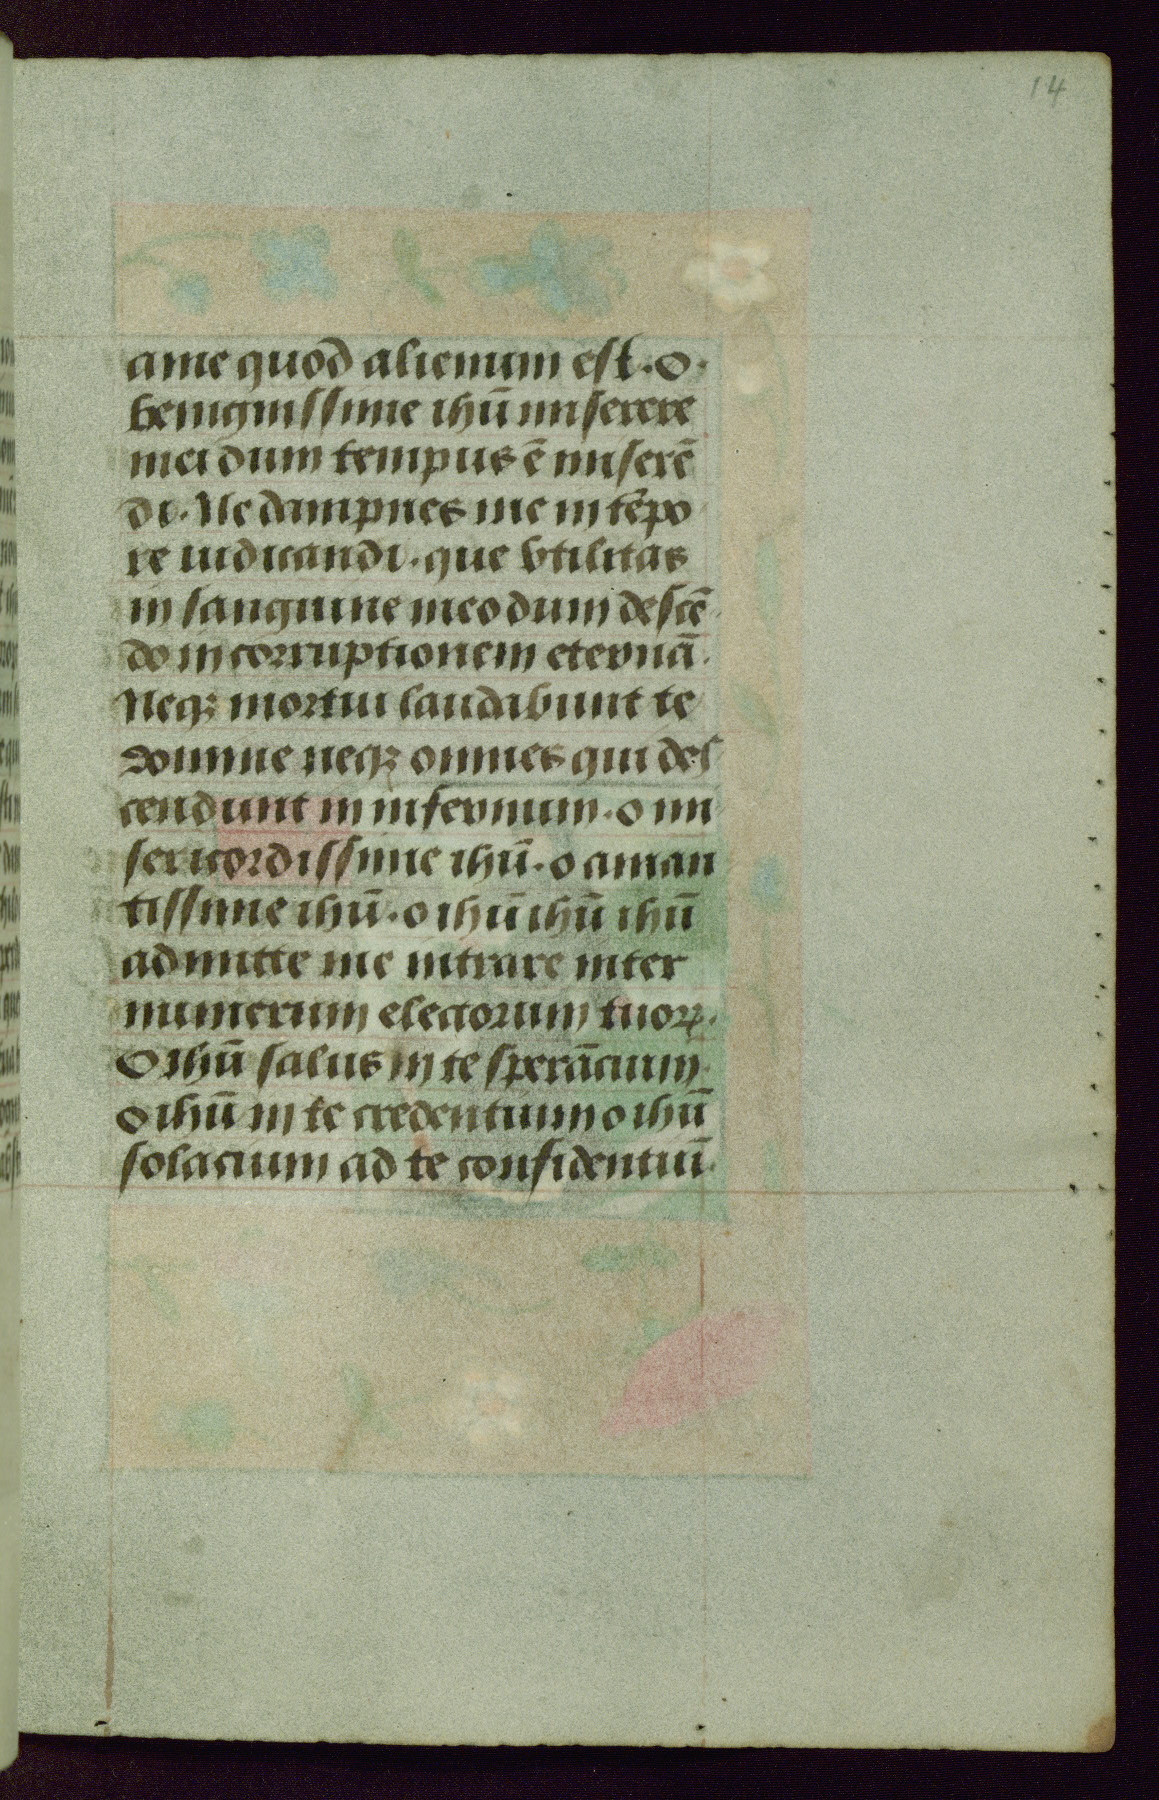 14
ame quod alienum est. O.
benignissime ihū miserere
mei dum tempus ē miserē
di. Ne dampnes me in tēpo
re iudicandi. que vtilitas
in sanguine meo dum descē
do in corruptionem eternā.
Neqꝫ mortui laudabunt te
domine neqꝫ omnes qui des
cendunt in infernum. o mi
sericordissime ihū. o aman
tissime ihū. o ihū ihū ihū
admitte me intrare inter
numerum electorum tuoꝝ.
O ihū salus in te sperācium
o ihū in te credentium o ihū
solacium ad te confidentiū.